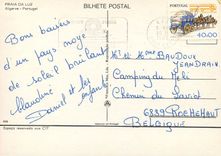 PRAIA DA LUZ
Algarve - Portugal
BILHETE POSTAL
PORTUGAL
40.00
Bons baisers
d'un pays noyé
de soleil brûlant
Claudine
Daniel et les
Mr et Mme BAUDOUX
JEANDRAIN
Camping du Poli
Chemin du
6839 ROCHEHAUT
BELGIQUE
Espaço reservado aos CTT